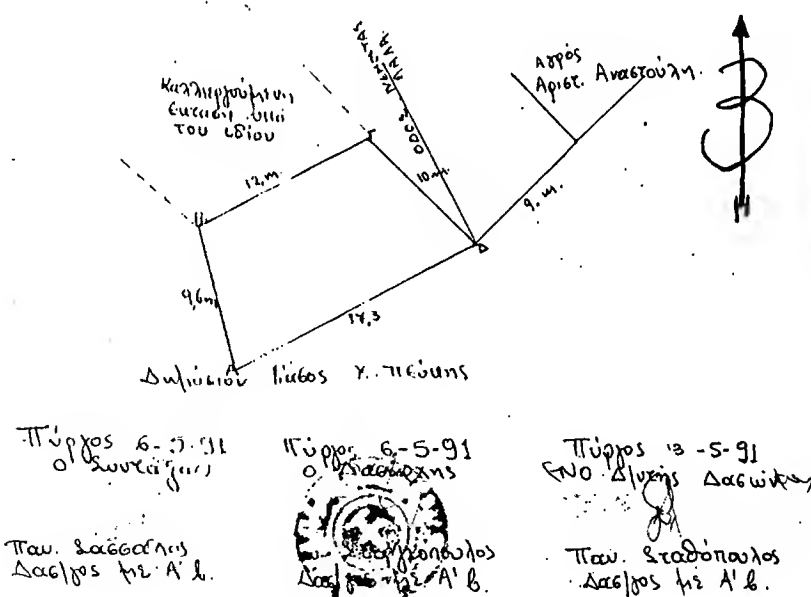 Καλλιεργούμενη
έκταση υπό
του ιδίου
ΟΔΟΣ
ΛΑΛΑ
Αγρός
Αριστ. Αναστούλη.
Β
Γ
12,m.
10m.
9. m.
Δ
9,6m
17,3
Α
Δημόσιον δάσος χ. πεύκης
Πύργος 6-5-91
Ο Συντάξας
Παν.
Δασ/γος με Α' β.
Πύργος 6-5-91
Ο Δασάρχης
Δασ/γος με Α' β.
Πύργος 13-5-91
Ο Δ/ντής Δασών
Παν. Σταθόπουλος
Δασ/γος με Α' β.